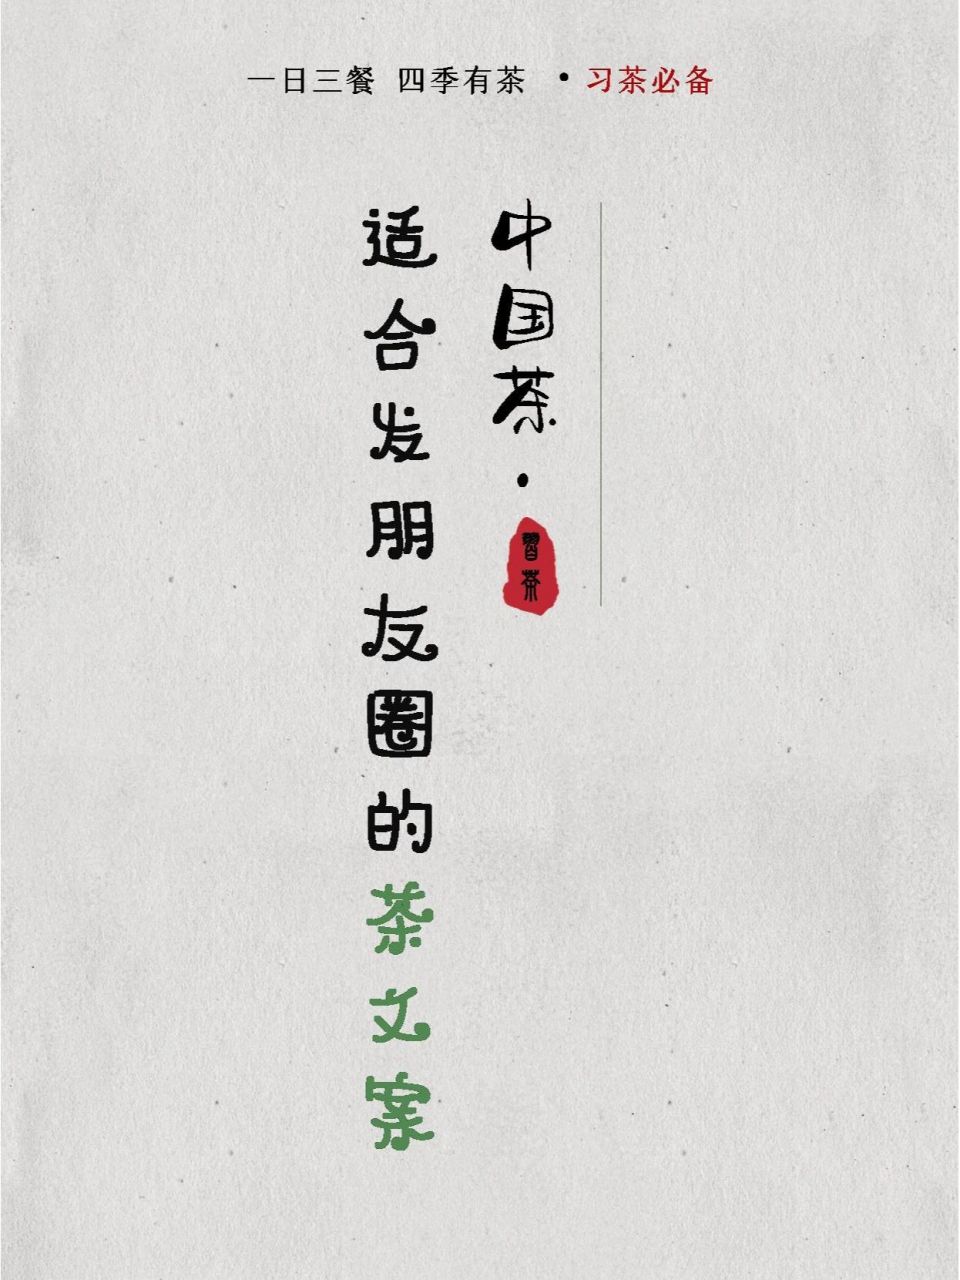 一日三餐 四季有茶 •习茶必备
中国茶·
習茶
适合发朋友圈的茶文案